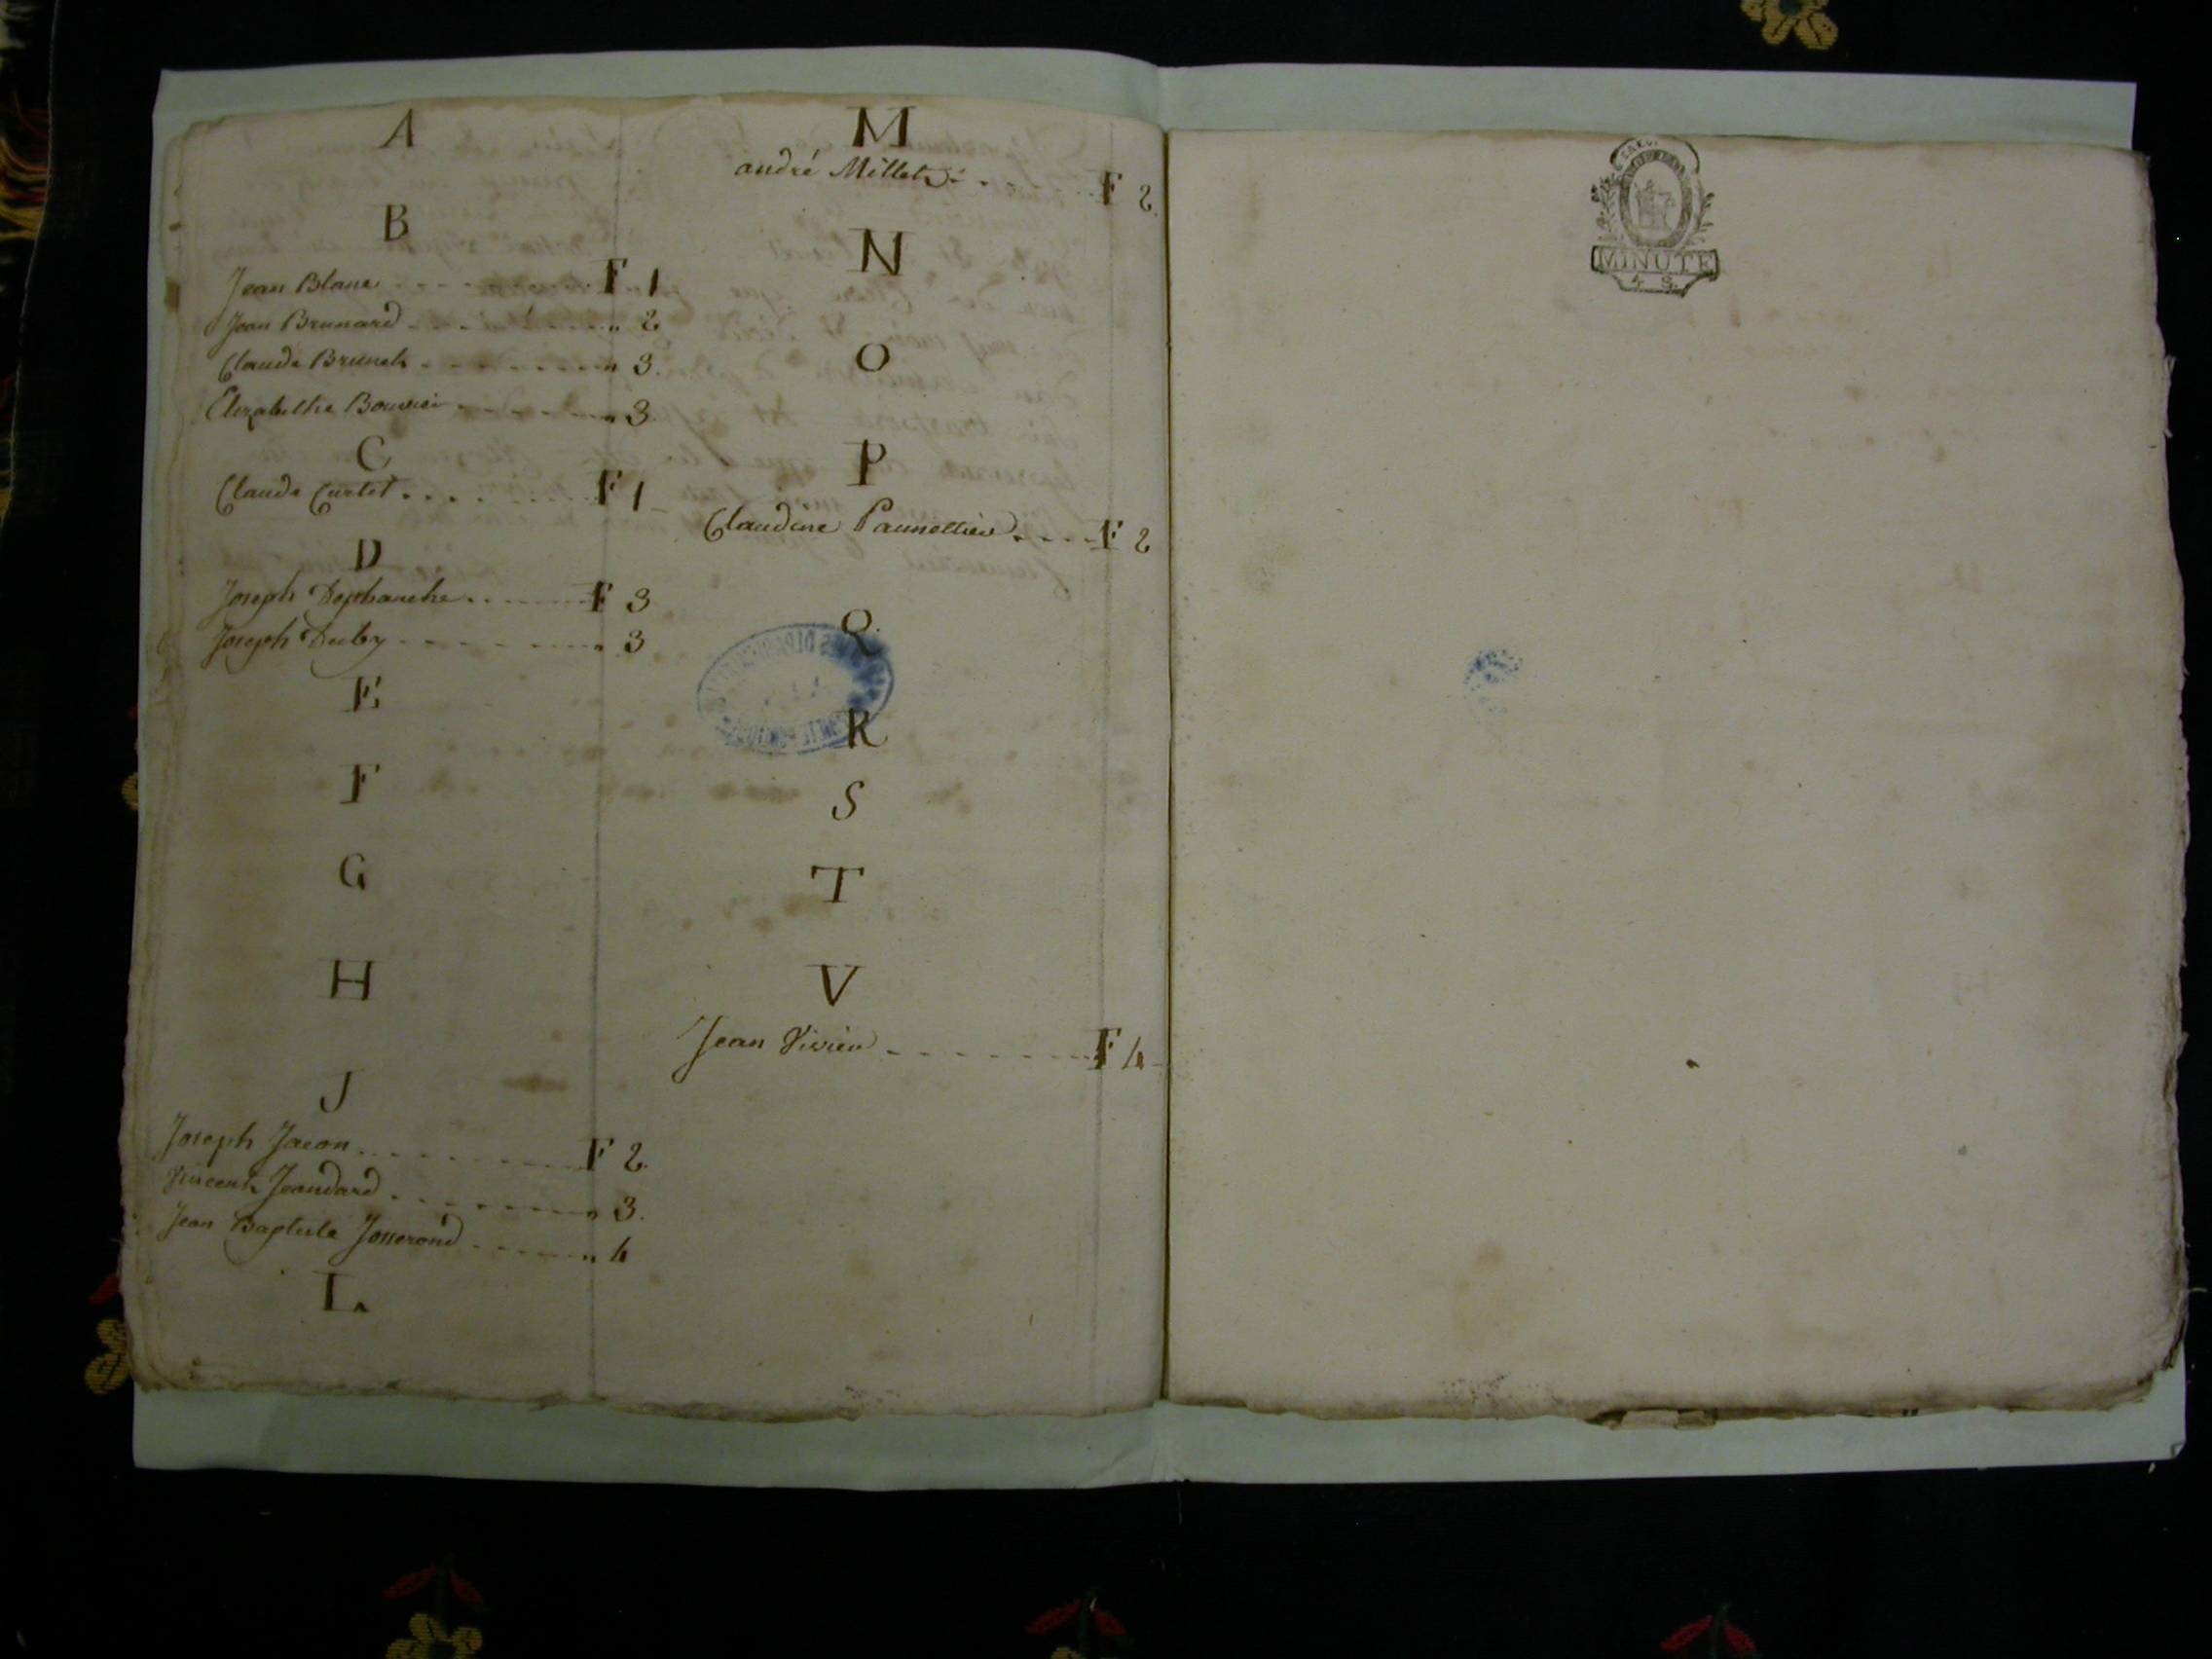 A
B
Jean Blanc F 1
Jean Brunard " 2
Claude Brunet " 3.
Elizabethe Bouvier " 3
C
Claude Curtet F 1
D
Joseph Dephanche F 3
Joseph Duby " 3
E
F
G
H
J
Joseph Jacon F 2.
Vincent Jeandard " 3.
Jean Baptiste Josserond " 4
L
M
andré Millet F 2.
N
O
P
Claudine F 2
Q
R
S
T
V
Jean Vivien F 4
MINUTE
4 S.